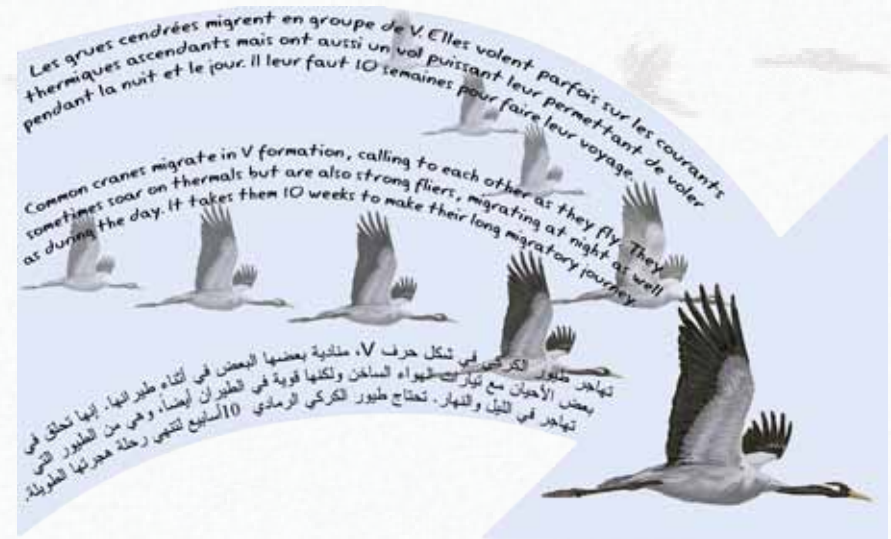 Les grues cendrées migrent en groupe de V. Elles volent parfois sur les courants
thermiques ascendants mais ont aussi un vol puissant leur permettant de voler
pendant la nuit et le jour. Il leur faut 10 semaines pour faire leur voyage.
Common cranes migrate in V formation, calling to each other as they fly. They
sometimes soar on thermals but are also strong fliers, migrating at night as well
as during the day. It takes them 10 weeks to make their long migratory journey.
تهاجر طيور الكركي في شكل حرف V، منادية بعضها البعض في أثناء طيرانها. إنها تحلق في
بعض الأحيان مع تيارات الهواء الساخن ولكنها قوية في الطيران أيضاً، وهي من الطيور التي
تهاجر في الليل والنهار. تحتاج طيور الكركي الرمادي 10أسابيع لتنهي رحلة هجرتها الطويلة.